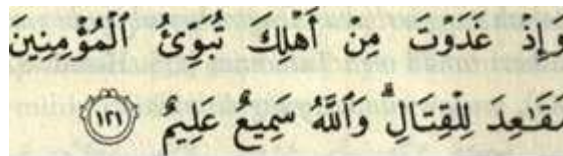 وَإِذْ غَدَوْتَ مِنْ أَهْلِكَ تُبَوِّئُ الْمُؤْمِنِينَ
مَقَاعِدَ لِلْقِتَالِ ۗ وَاللَّهُ سَمِيعٌ عَلِيمٌ ﴿١٢١﴾